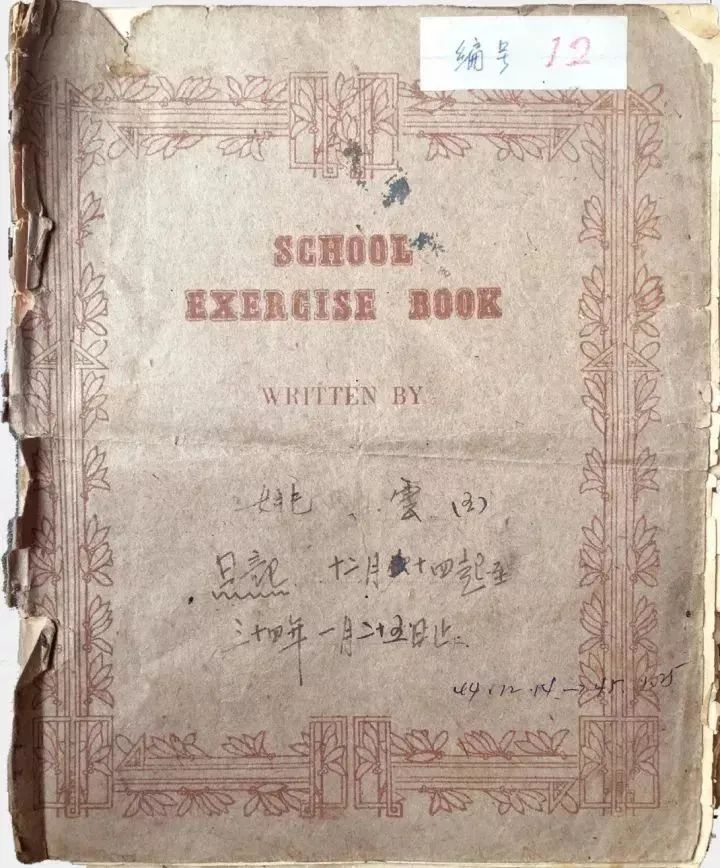 编号 12
SCHOOL
EXERCISE BOOK
WRITTEN BY
姚 雲 (五)
日記 十二月十四起至
三十四年一月二十五日止
44.12.14→45.1.25